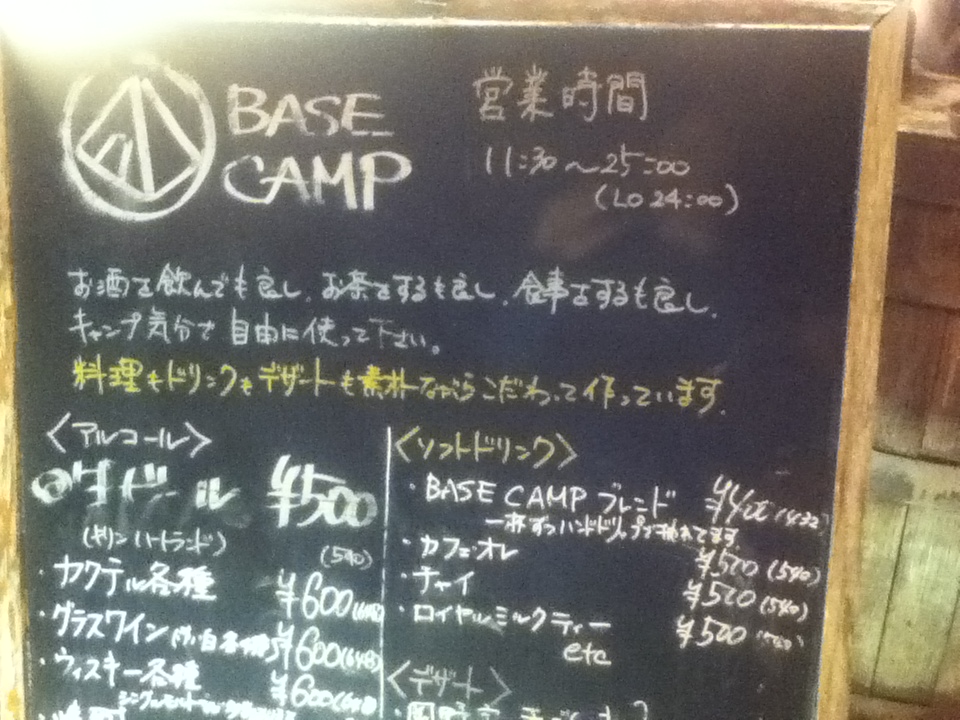 BASE CAMP
営業時間
11:30～25:00
(LO 24:00)
お酒を飲んでも良し、お茶をするも良し、食事をするも良し、
キャンプ気分で自由に使って下さい。
料理もドリンクもデザートも素朴ながらこだわって作っています。
〈アルコール〉
生ビール ¥500
(キリン ハートランド) (540)
・カクテル各種 ¥600(648)
・グラスワイン ¥600(648)
・ウィスキー各種 ¥600(648)
〈ソフトドリンク〉
・BASE CAMP ブレンド ¥400(432)
一杯ずつハンドドリップで淹れてます
・カフェ・オレ ¥500(540)
・チャイ ¥500(540)
・ロイヤルミルクティー ¥500(540)
etc
〈デザート〉